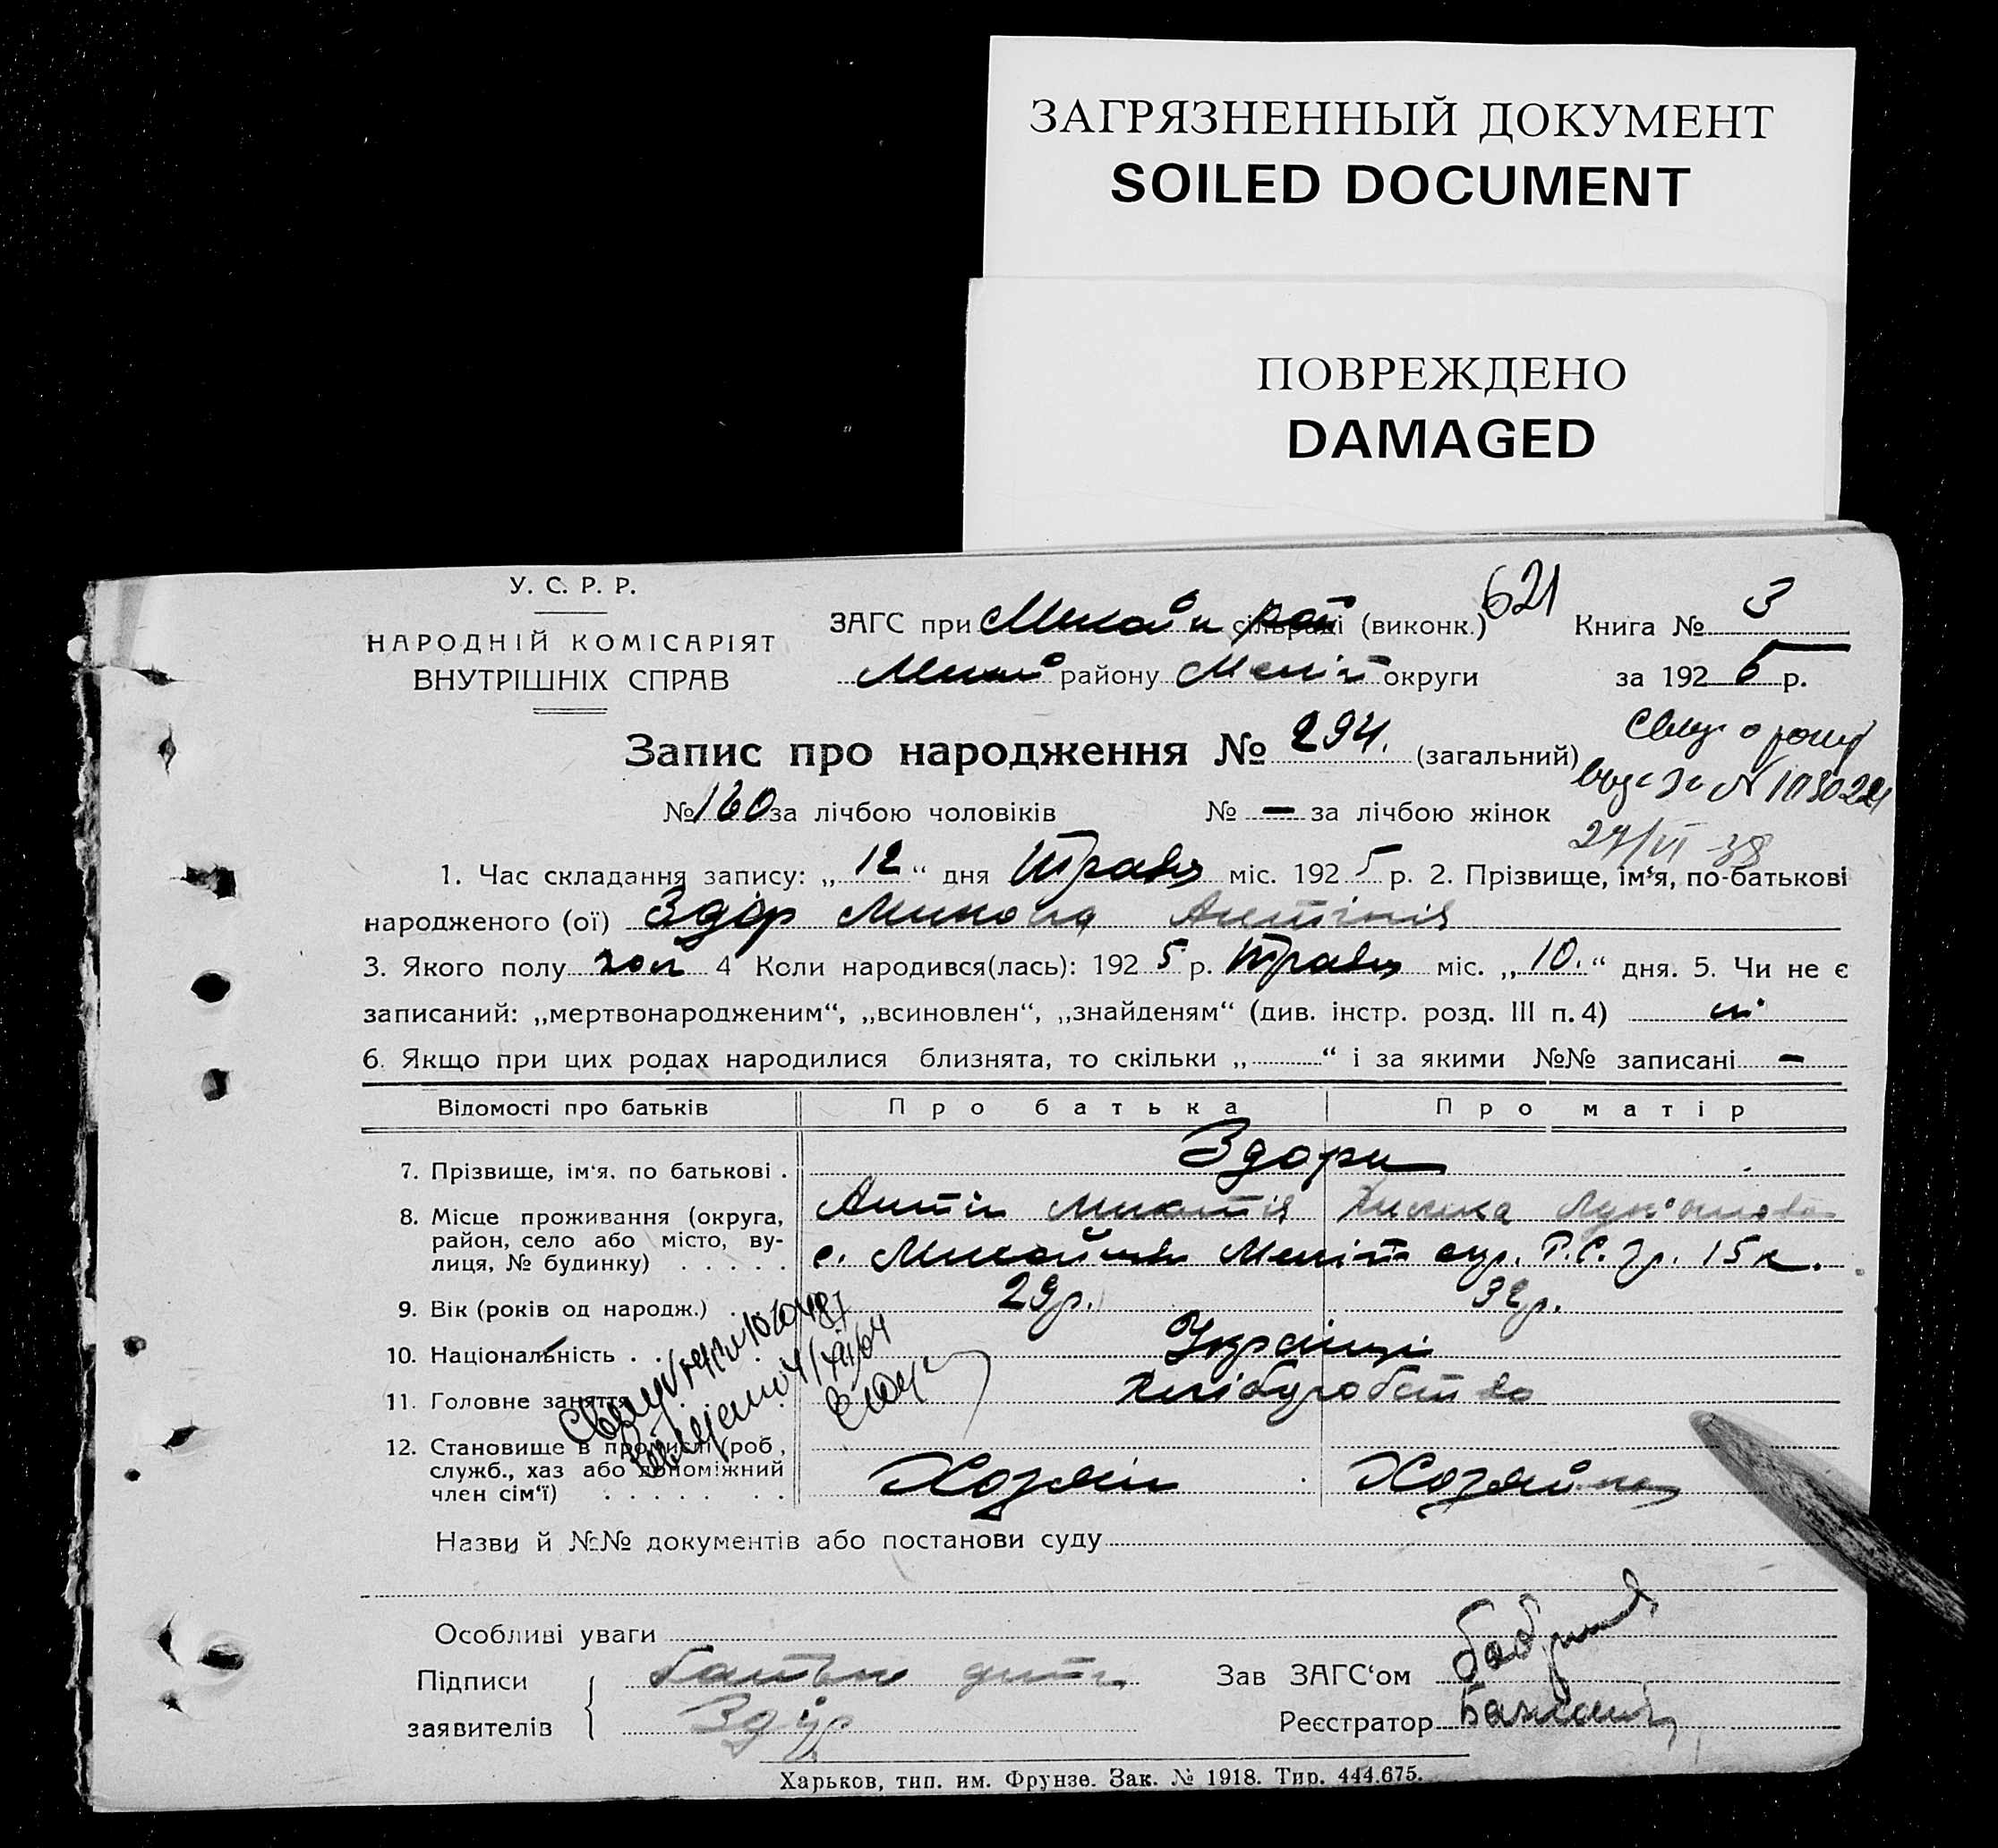 ЗАГРЯЗНЕННЫЙ ДОКУМЕНТ
SOILED DOCUMENT
ПОВРЕЖДЕНО
DAMAGED
У. С. Р. Р.
НАРОДНІЙ КОМІСАРІЯТ
ВНУТРІШНІХ СПРАВ
621
ЗАГС при сільраді (виконк.) Книга № 3
району Меліт округи за 1925 р.
Запис про народження № 294. (загальний)
№ 160 за лічбою чоловіків № — за лічбою жінок
27/VI 38
1. Час складання запису: „ 12 “ дня Травня міс. 1925 р. 2. Прізвище, ім‘я, по-батькові
народженого (ої) Здор Микола
3. Якого полу чол 4 Коли народився(лась): 1925 р. Травня міс. „ 10. “ дня. 5. Чи не є
записаний: „мертвонародженим“, „всиновлен“, „знайденям“ (див. інстр. розд. III п. 4) ні
6. Якщо при цих родах народилися близнята, то скільки „ “ і за якими №№ записані —
Відомості про батьків Про батька Про матір
7. Прізвище, ім‘я, по батькові . Здори
8. Місце проживання (округа,
район, село або місто, ву-
лиця, № будинку) . . . . . с. Меліт окр.
9. Вік (років од народж.) 29 р. 32 р.
10. Національність . Українці
11. Головне заняття Хліборобство
12. Становище в промислі (роб,
служб., хаз або допоміжний
член сім‘ї) . . . . . . Хозяїн Хозяйка
Назви й №№ документів або постанови суду
Особливі уваги
Підписи батько дит. Зав ЗАГС‘ом
заявителів Здор Реєстратор
Харьков, тип. им. Фрунзе. Зак. № 1918. Тир. 444.675.